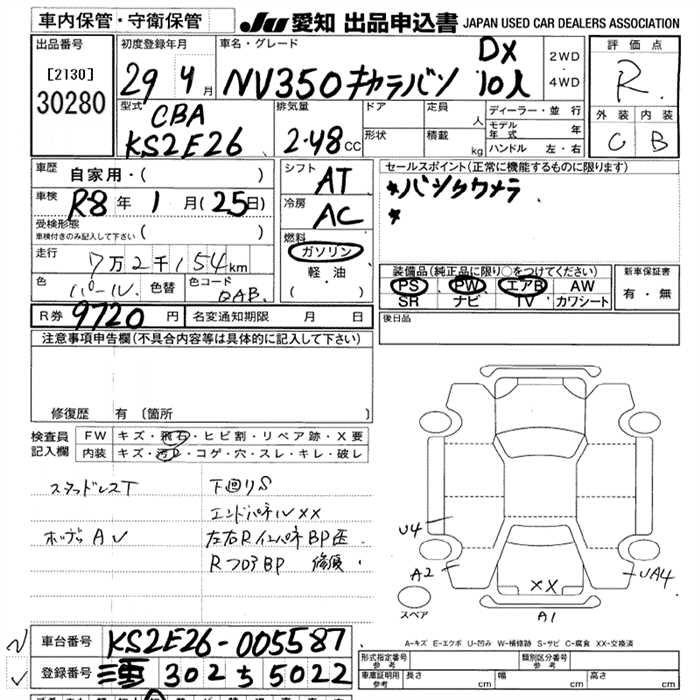 車内保管・守衛保管
JU 愛知 出品申込書 JAPAN USED CAR DEALERS ASSOCIATION
出品番号
[2130]
30280
初度登録年月
29年4月
車名・グレード
NV350キャラバン DX 10人
2WD・4WD
評価点
R
外装 内装
C B
型式
CBA
KS2E26
排気量
2.48CC
ドア
形状
定員 人
積載 kg
ディーラー・並行
モデル年式 年
ハンドル 左・右
車歴
自家用・( )
車検
R8年1月(25日)
受検形態
車検付きのみ記入して下さい ( )
走行
7万2千154km
色 パール 色替 色コード QAB
シフト
AT
冷房
AC
燃料
ガソリン
軽・油
( )
セールスポイント(正常に機能するものに限ります)
*バックカメラ
*
装備品(純正品に限り○をつけてください)
PS PW エアB AW
SR ナビ TV カワシート
新車保証書
有・無
R券 9720円 名変通知期限 月 日
後日品
注意事項申告欄(不具合内容等は具体的に記入して下さい)
修復歴 有 〔箇所 〕
検査員記入欄
FW キズ・飛石・ヒビ割・リペア跡・X要
内装 キズ・汚れ・コゲ・穴・スレ・キレ・破レ
スタッドレスT 下回りS
エンドパネルXX
ボディAU 左右RインパネBP歪
RフロアBP 修復
U4
A2
UA4
XX
A1
スペア
A-キズ E-エクボ U-凹み W-補修跡 S-サビ C-腐食 XX-交換済
車台番号 KS2E26-005587
登録番号 三重 302 ち 5022
形式指定番号 参考
類別区分番号 参考
車庫証明用 参考 長さ cm 幅 cm 高さ cm